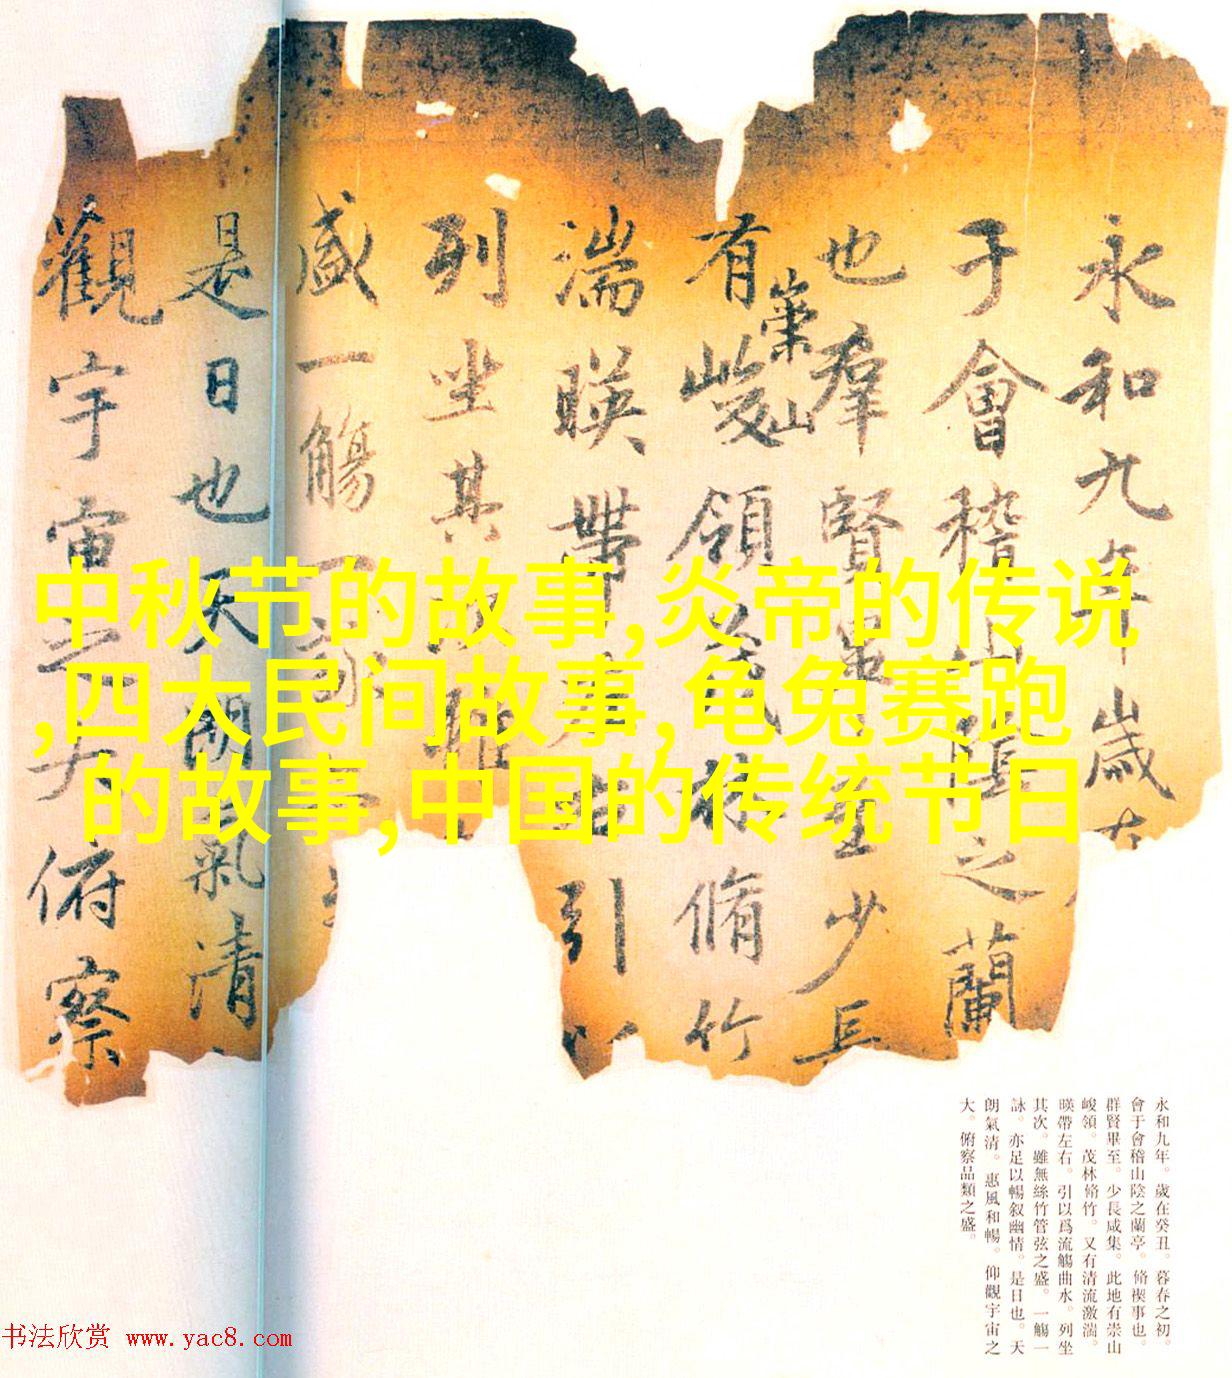 永和九年歲在
于會稽山陰之蘭
也羣賢畢至少長
有崇山峻領茂林脩竹
湍暎帶左右引以
列坐其次雖
盛一觴一詠
是日也天朗氣清
觀宇宙之大俯察
中秋节的故事,炎帝的传说
,四大民间故事,龟兔赛跑
的故事,中国的传统节日
永和九年。歲在癸丑。暮春之初。
會于會稽山陰之蘭亭。脩禊事也。
群賢畢至。少長咸集。此地有崇山
峻領。茂林脩竹。又有清流激湍。
暎帶左右。引以爲流觴曲水。列坐
其次。雖無絲竹管弦之盛。一觴一
詠。亦足以暢叙幽情。是日也。天
朗氣清。惠風和暢。仰觀宇宙之
大。俯察品類之盛。
书法欣赏 www.yac8.com